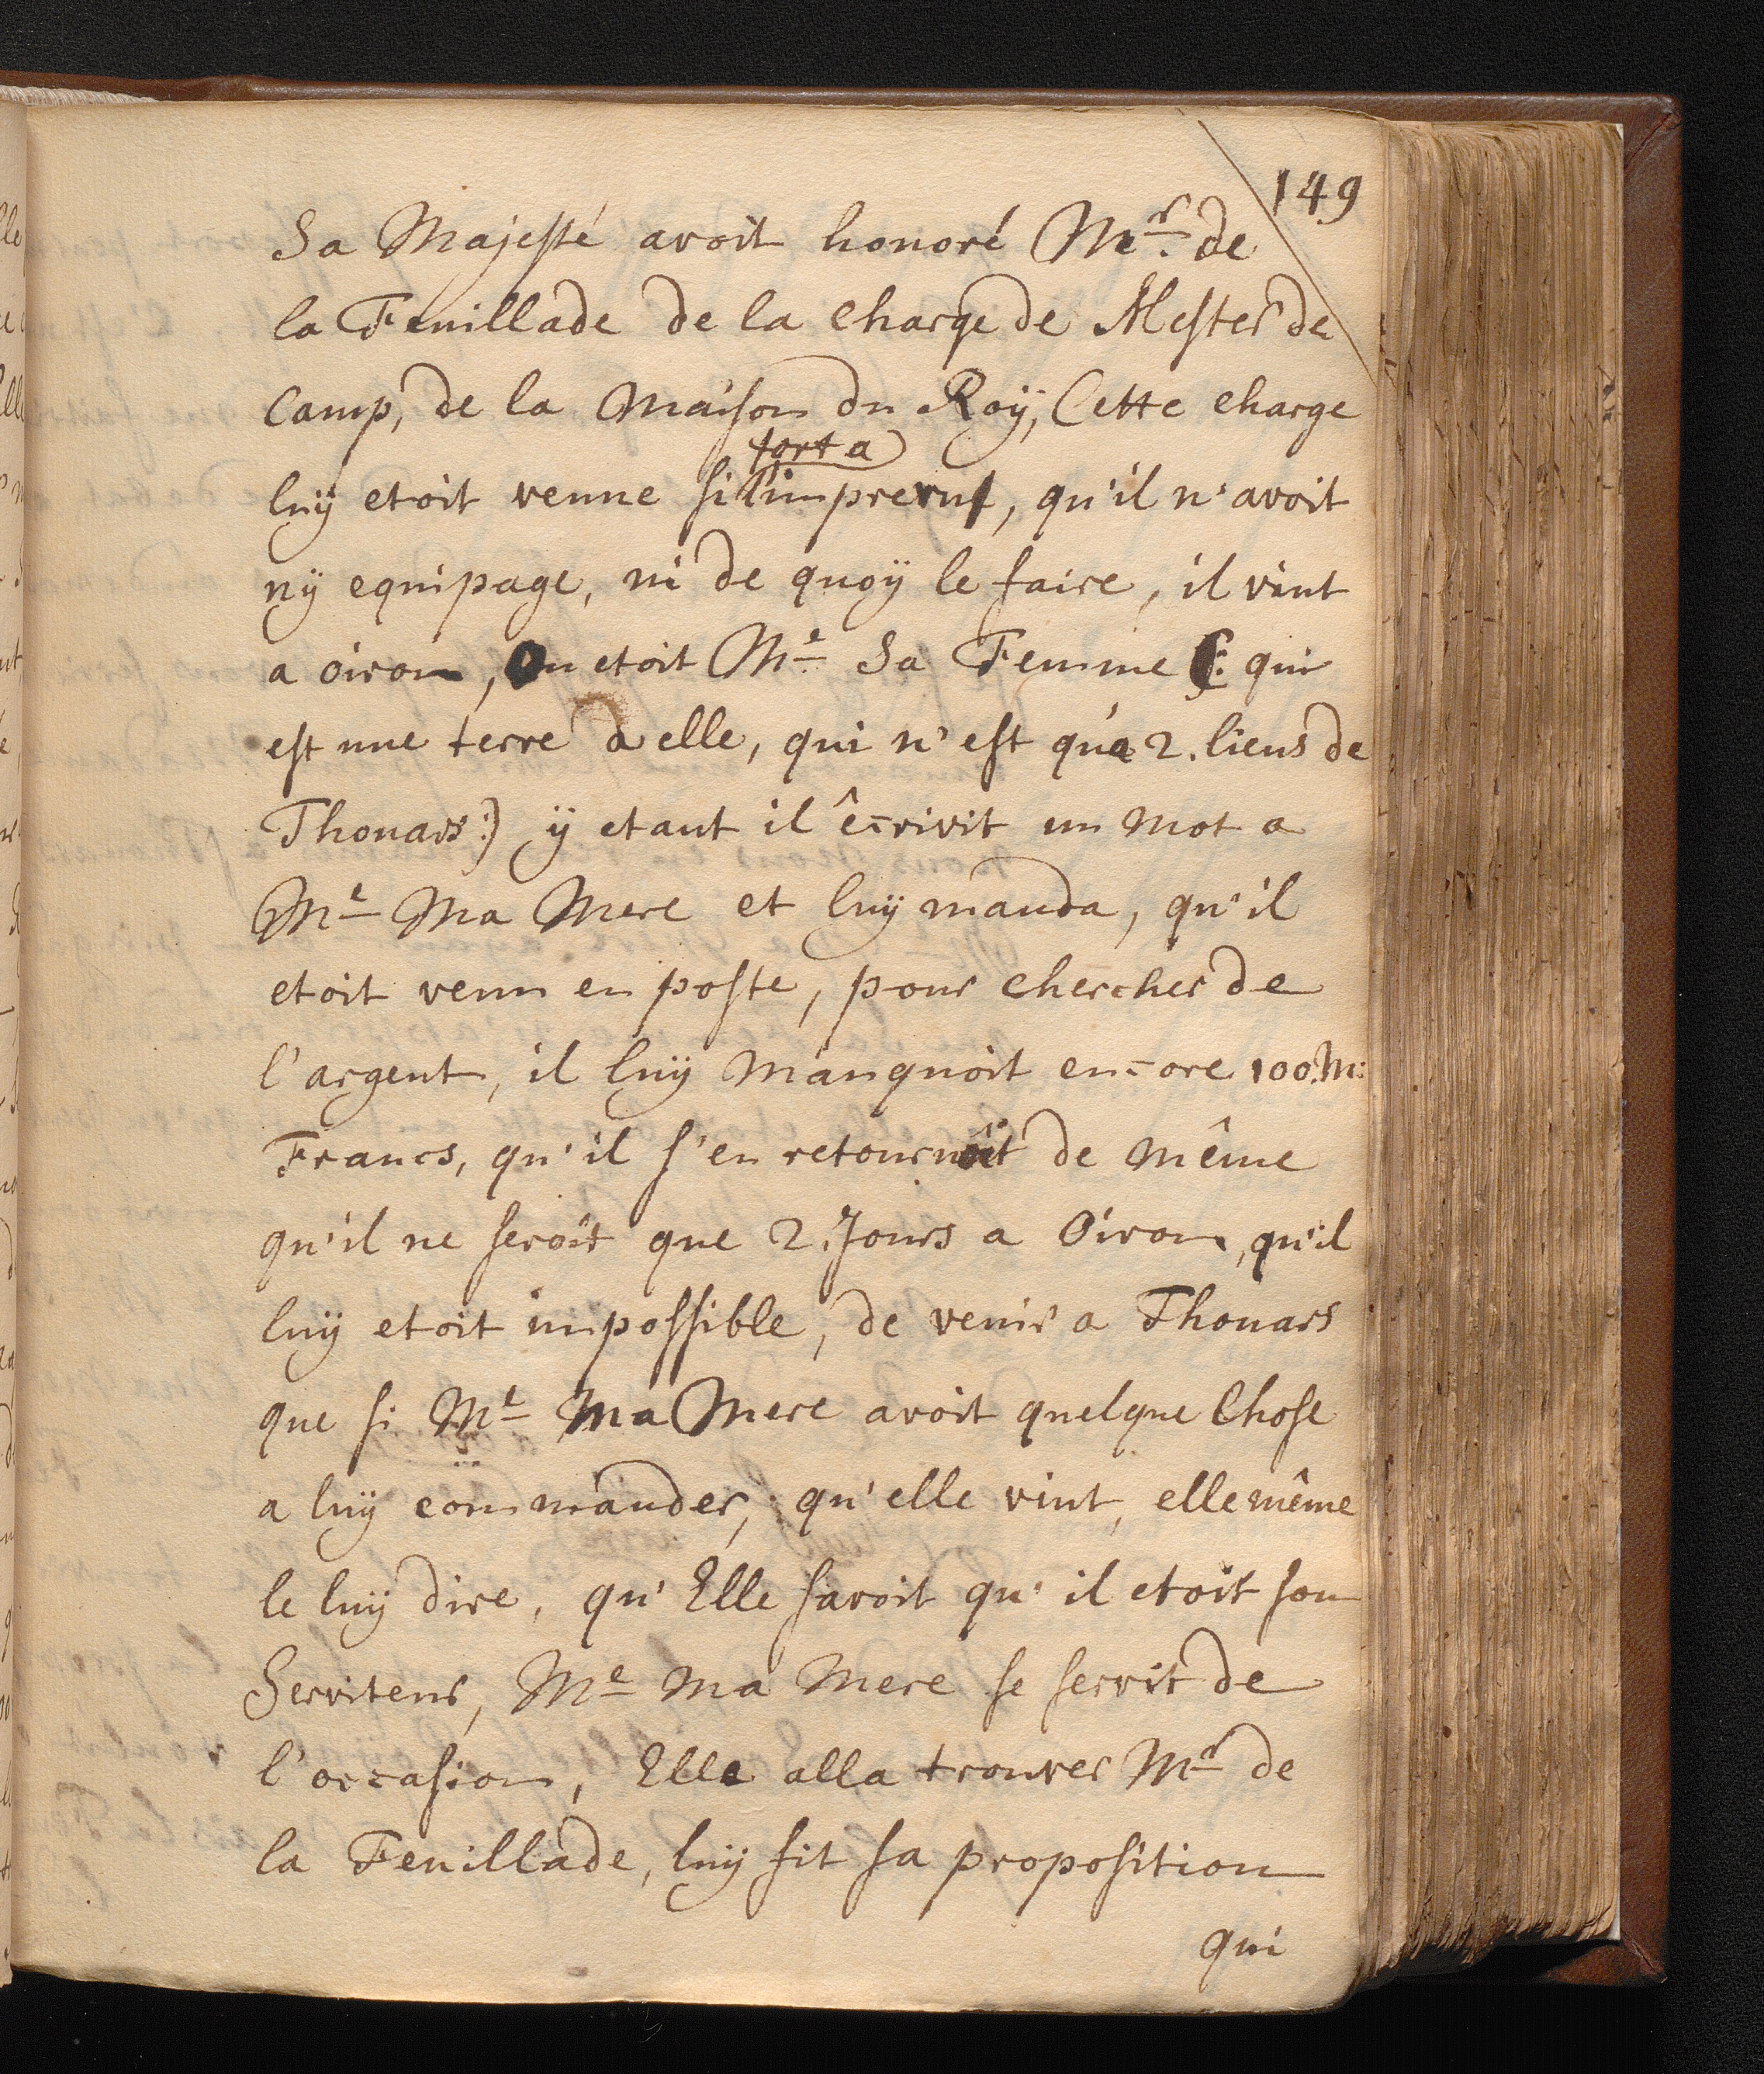 149
Sa Majesté avoit honoré Mr. de
la Feuillade de la charge de Mester de
Camp, de la Maison du Roÿ, Cette charge
fort a
luÿ etoit venue si l'imprevuf, qu'il n'avoit
nÿ equipage, ni de quoÿ le faire, il vint
a oiron, Ou etoit Me Sa Femme (: qui
est une terre a elle, qui n'est qu'a 2. lieus de
Thouars:) ÿ etant il êcrivit un mot a
Me Ma Mere et luÿ manda, qu'il
etoit venu en poste, pour chercher de
l'argent, il luÿ manquoit encore 100.M:
Francs, qu'il s'en retournoit de même
qu'il ne seroit que 2. Jours a Oiron, qu'il
luÿ etoit impossible, de venir a Thouars
que si Me Ma Mere avoit quelque Chose
a luÿ commander, qu'elle vint, elle même
le luÿ dire, qu'Elle savoit qu'il etoit son
Serviteur, Me Ma Mere se servit de
l'occasion, Elle alla trouver Mr de
la Feuillade, luÿ fit sa proposition
qui